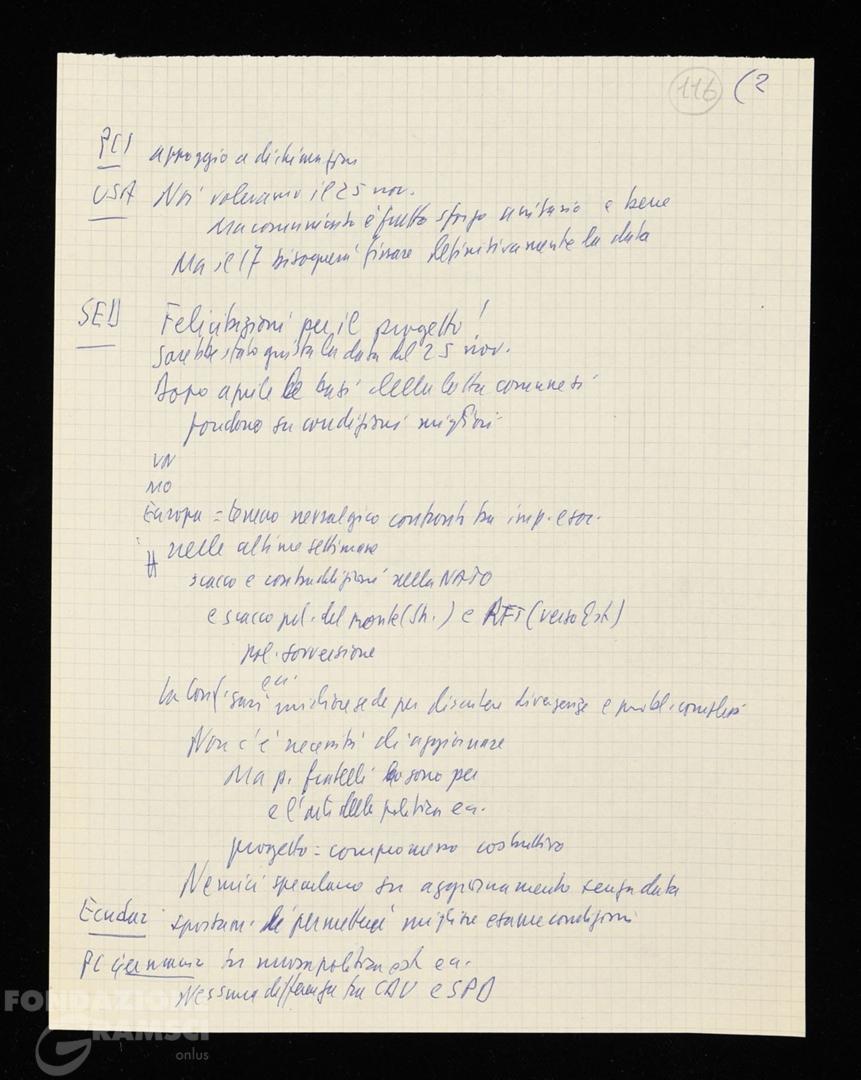 116 (2
PCI appoggio a dichiarazioni
USA Noi volevamo il 25 nov.
Ma comunicato è frutto sforzo unitario e bene
Ma il 17 bisognerà fissare definitivamente la data
SED Felicitazioni per il progetto!
Sarebbe stata giusta la data del 25 nov.
Dopo aprile le basi della lotta comune si
fondono su condizioni migliori
VN
MO
Europa = terreno nevralgico confronti tra imp. e soc.
nelle ultime settimane
scacco e contraddizioni nella NATO
e scacco pol. del ponte (St.) e RFT (verso Est)
pol. sovversione
ecc.
La Conf. sarà migliore sede per discutere divergenze e probl. complessi
Non c'è necessità di aggiornare
Ma p. fratelli lo sono per
e l'
progetto = compromesso costruttivo
Nemici speculano su aggiornamento senza data
Ecuador spostam. permetterà migliore esame condizioni
PC Germania su nuova politica est ecc.
Nessuna differenza tra CDU e SPD
FONDAZIONE
GRAMSCI
onlus